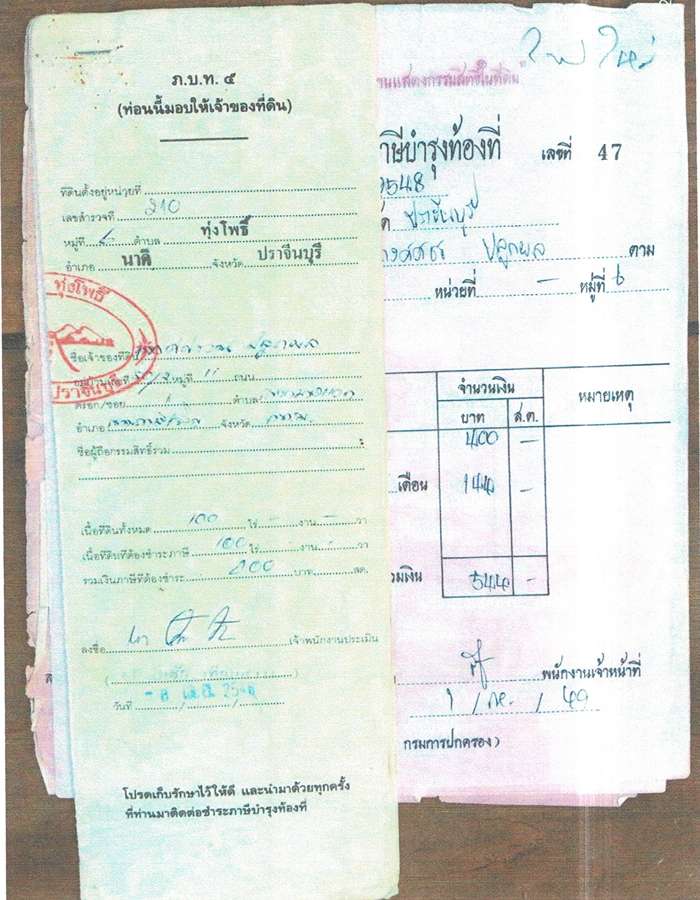 ภ.บ.ท. ๕
(ท่อนนี้มอบให้เจ้าของที่ดิน)
ที่ดินตั้งอยู่หน่วยที่
เลขสำรวจที่ 210
หมู่ที่ ตำบล ทุ่งโพธิ์
อำเภอ นาดี จังหวัด ปราจีนบุรี
ทุ่งโพธิ์
ปราจีนบุรี
ชื่อเจ้าของที่ดิน
หมู่ที่ 11 ถนน
ตรอก/ซอย ตำบล
อำเภอ จังหวัด
ชื่อผู้ถือกรรมสิทธิ์รวม
เนื้อที่ดินทั้งหมด 100 ไร่ - งาน - วา
เนื้อที่ดินที่ต้องชำระภาษี 100 ไร่ - งาน - วา
รวมเงินภาษีที่ต้องชำระ 400 บาท สต.
ลงชื่อ เจ้าพนักงานประเมิน
วันที่ - 8
โปรดเก็บรักษาไว้ให้ดี และนำมาด้วยทุกครั้ง
ที่ท่านมาติดต่อชำระภาษีบำรุงท้องที่
ใบใหม่
นแสดงกรรมสิทธิ์ในที่ดิน"
าษีบำรุงท้องที่ เลขที่ 47
2548
ด ปราจีนบุรี
ปลูกผล ตาม
หน่วยที่ - หมู่ที่ 6
จำนวนเงิน หมายเหตุ
บาท ส.ต.
400 -
เดือน 144 -
วมเงิน 544 -
พนักงานเจ้าหน้าที่
1 / / 49
กรมการปกครอง)